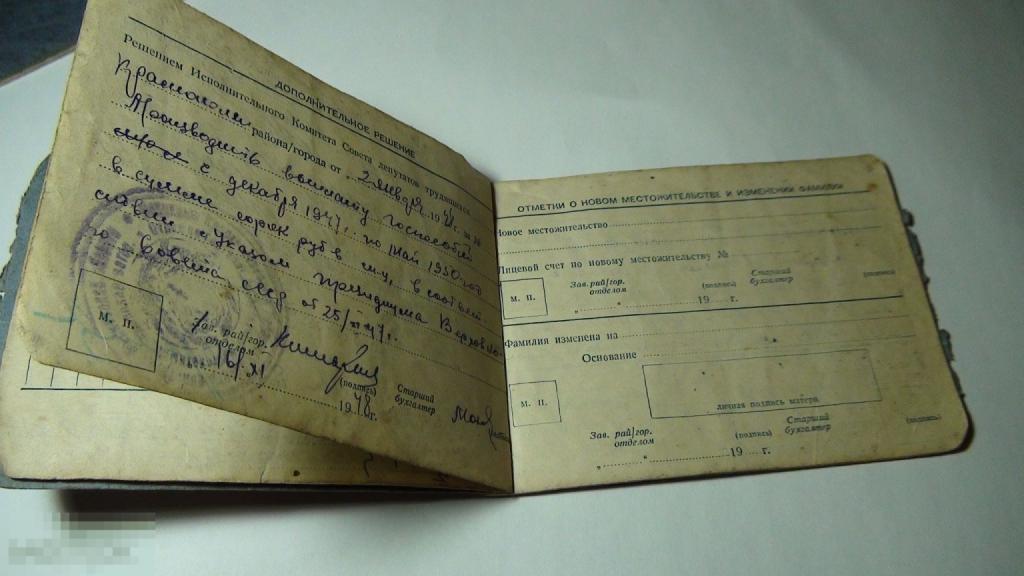 ДОПОЛНИТЕЛЬНОЕ РЕШЕНИЕ
Решением Исполнительного Комитета Совета депутатов трудящихся
района/города от 2 января 194 г. за №
Производить выплату госпособия
с декабря 1947 г. по май 1950 год
в сумме сорок руб в м-ц, в соответ-
ствии с Указом президиума Верховно-
го Совета от 25/XI 47 г.
М. П.
Зав. рай/гор.
отделом
(подпись)
Старший
бухгалтер
16/XI 1948 г.
ОТМЕТКИ О НОВОМ МЕСТОЖИТЕЛЬСТВЕ И ИЗМЕНЕНИИ ФАМИЛИИ
Новое местожительство
Лицевой счет по новому местожительству №
М. П.
Зав. рай/гор.
отделом
(подпись)
Старший
бухгалтер
(подпись)
„ “ 19 г.
Фамилия изменена на
Основание
личная подпись матери
М. П.
Зав. рай/гор.
отделом
(подпись)
Старший
бухгалтер
(подпись)
„ “ 19 г.